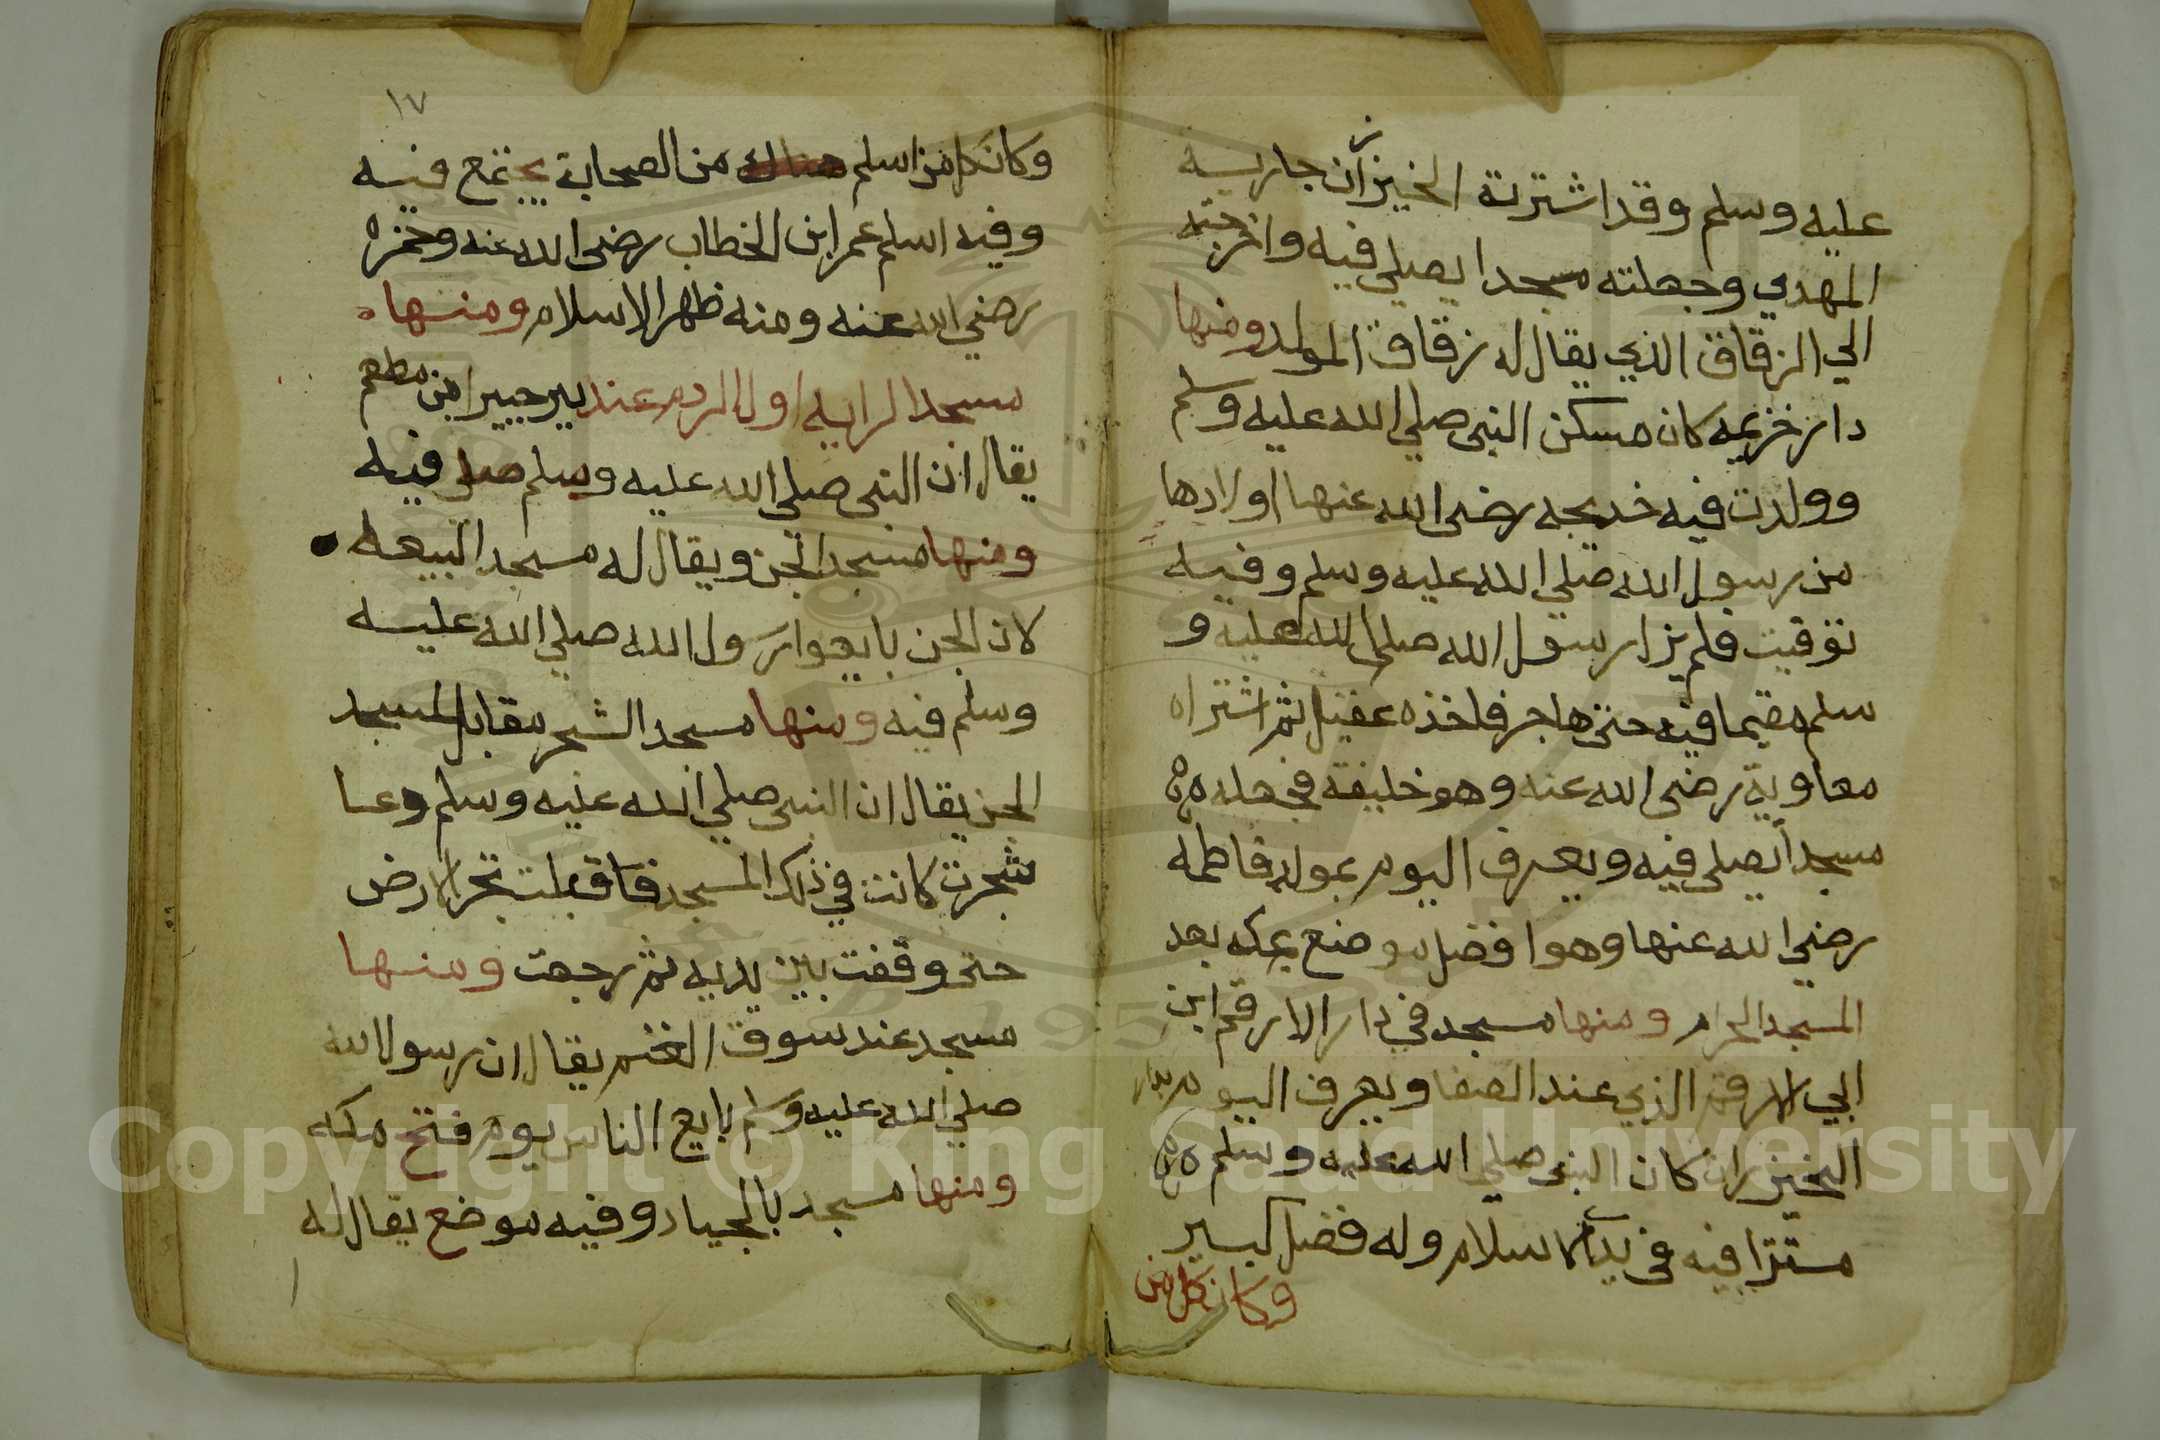 عليه وسلم وقد اشترته الخيزران جارية
المهدي وجعلته مسجدا يصلي فيه واخرجته
الي الزقاق الذي يقال له زقاق المولد ومنها
دار خزيمه كان مسكن النبي صلي الله عليه وسلم
وولدت فيه خديجه رضي الله عنها اولادها
من رسول الله صلي الله عليه وسلم وفيه
توفيت فلم يزل رسول الله صلي الله عليه و
سلم مقيما فيه حتى هاجر فاخذه عقيل ثم اشتراه
معاوية رضي الله عنه وهو خليفة فجعله
مسجدا يصلي فيه ويعرف اليوم بمولد فاطمه
رضي الله عنها وهو افضل موضع بمكه بعد
المسجد الحرام ومنها مسجد في دار الارقم ابن
ابي الارقم الذي عند الصفا ويعرف اليوم بدار
الخيزران كان النبي صلي الله عليه وسلم
مستترا فيه في بداية الاسلام وله فضل كبير
وكان كل من
١٧
وكان كل من اسلم هناك من الصحابة يجتمع فيه
وفيه اسلم عمر ابن الخطاب رضي الله عنه وحمزه
رضي الله عنه ومنه ظهر الاسلام ومنها
مسجد الراية اول الردم عند بير جبير ابن مطعم
يقال ان النبي صلي الله عليه وسلم صلى فيه
ومنها مسجد الجن ويقال له مسجد البيعه
لان الجن بايعوا رسول الله صلي الله عليه
وسلم فيه ومنها مسجد الشجر مقابل المسجد
الجن يقال ان النبي صلي الله عليه وسلم دعا
شجرت كانت في ذلك المسجد فاقبلت تجر الارض
حتى وقفت بين يديه ثم رجعت ومنها
مسجد عند سوق الغنم يقال ان رسول الله
صلي الله عليه وسلم بايع الناس يوم فتح مكه
ومنها مسجد بالجياد وفيه موضع يقال له
Copyright © King Saud University